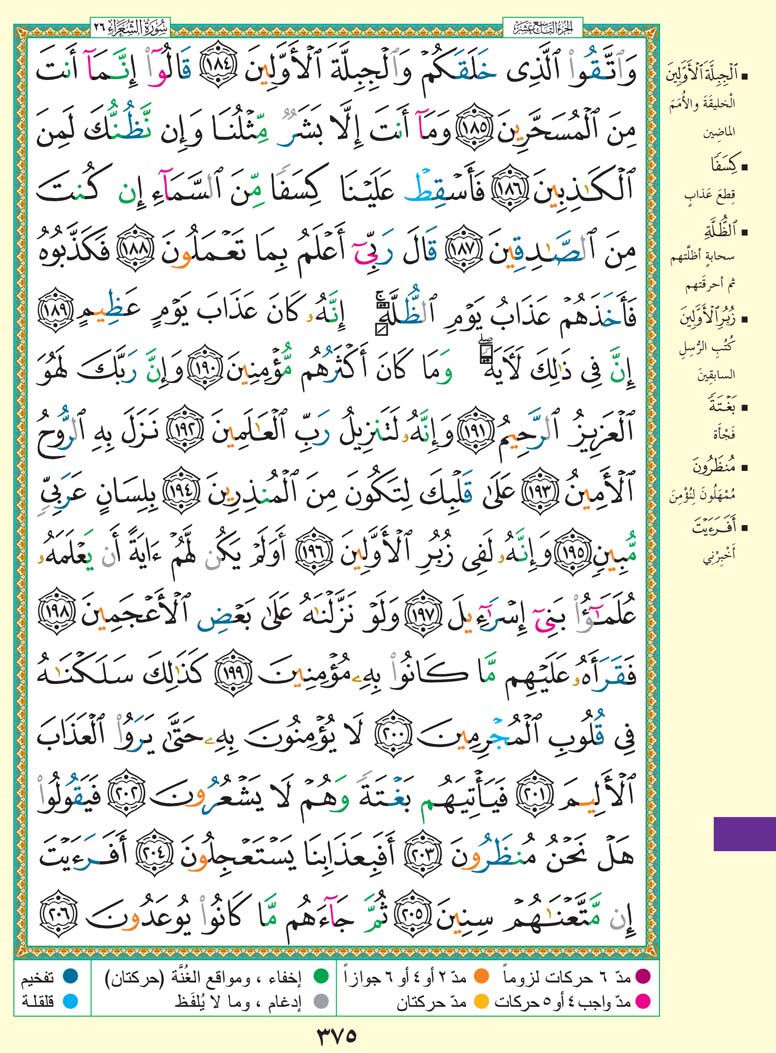 سُورَةُ الشُّعَرَاءِ ٢٦
الجزء التاسع عشر
وَٱتَّقُوا۟ ٱلَّذِى خَلَقَكُمْ وَٱلْجِبِلَّةَ ٱلْأَوَّلِينَ ١٨٤ قَالُوٓا۟ إِنَّمَآ أَنتَ
مِنَ ٱلْمُسَحَّرِينَ ١٨٥ وَمَآ أَنتَ إِلَّا بَشَرٌ مِّثْلُنَا وَإِن نَّظُنُّكَ لَمِنَ
ٱلْكَـٰذِبِينَ ١٨٦ فَأَسْقِطْ عَلَيْنَا كِسَفًا مِّنَ ٱلسَّمَآءِ إِن كُنتَ
مِنَ ٱلصَّـٰدِقِينَ ١٨٧ قَالَ رَبِّىٓ أَعْلَمُ بِمَا تَعْمَلُونَ ١٨٨ فَكَذَّبُوهُ
فَأَخَذَهُمْ عَذَابُ يَوْمِ ٱلظُّلَّةِ ۚ إِنَّهُۥ كَانَ عَذَابَ يَوْمٍ عَظِيمٍ ١٨٩
إِنَّ فِى ذَٰلِكَ لَـَٔايَةً ۖ وَمَا كَانَ أَكْثَرُهُم مُّؤْمِنِينَ ١٩٠ وَإِنَّ رَبَّكَ لَهُوَ
ٱلْعَزِيزُ ٱلرَّحِيمُ ١٩١ وَإِنَّهُۥ لَتَنزِيلُ رَبِّ ٱلْعَـٰلَمِينَ ١٩٢ نَزَلَ بِهِ ٱلرُّوحُ
ٱلْأَمِينُ ١٩٣ عَلَىٰ قَلْبِكَ لِتَكُونَ مِنَ ٱلْمُنذِرِينَ ١٩٤ بِلِسَانٍ عَرَبِىٍّ
مُّبِينٍ ١٩٥ وَإِنَّهُۥ لَفِى زُبُرِ ٱلْأَوَّلِينَ ١٩٦ أَوَلَمْ يَكُن لَّهُمْ ءَايَةً أَن يَعْلَمَهُۥ
عُلَمَـٰٓؤُا۟ بَنِىٓ إِسْرَٰٓءِيلَ ١٩٧ وَلَوْ نَزَّلْنَـٰهُ عَلَىٰ بَعْضِ ٱلْأَعْجَمِينَ ١٩٨
فَقَرَأَهُۥ عَلَيْهِم مَّا كَانُوا۟ بِهِۦ مُؤْمِنِينَ ١٩٩ كَذَٰلِكَ سَلَكْنَـٰهُ
فِى قُلُوبِ ٱلْمُجْرِمِينَ ٢٠٠ لَا يُؤْمِنُونَ بِهِۦ حَتَّىٰ يَرَوُا۟ ٱلْعَذَابَ
ٱلْأَلِيمَ ٢٠١ فَيَأْتِيَهُم بَغْتَةً وَهُمْ لَا يَشْعُرُونَ ٢٠٢ فَيَقُولُوا۟
هَلْ نَحْنُ مُنظَرُونَ ٢٠٣ أَفَبِعَذَابِنَا يَسْتَعْجِلُونَ ٢٠٤ أَفَرَءَيْتَ
إِن مَّتَّعْنَـٰهُمْ سِنِينَ ٢٠٥ ثُمَّ جَآءَهُم مَّا كَانُوا۟ يُوعَدُونَ ٢٠٦
ٱلْجِبِلَّةَ ٱلْأَوَّلِينَ
الْخليقَة والأُمَمَ
الماضِين
كِسَفًا
قِطعَ عَذابٍ
ٱلظُّلَّةِ
سحابةٍ أظلَّتهم
ثم أحرقَتهم
زُبُرِ ٱلْأَوَّلِينَ
كُتُبِ الرُّسِلِ
السابقِينَ
بَغْتَةً
فَجْأة
مُنظَرُونَ
مُمْهَلُونَ لِنُؤْمِنَ
أَفَرَءَيْتَ
أَخْبِرْنِي
مدّ ٦ حركات لزوماً
مدّ ٢ أو ٤ أو ٦ جوازاً
إخفاء ، ومواقع الغُنَّة (حركتان)
تفخيم
مدّ واجب ٤ أو ٥ حركات
مدّ حركتان
إدغام ، وما لا يُلفَظ
قلقلة
٣٧٥